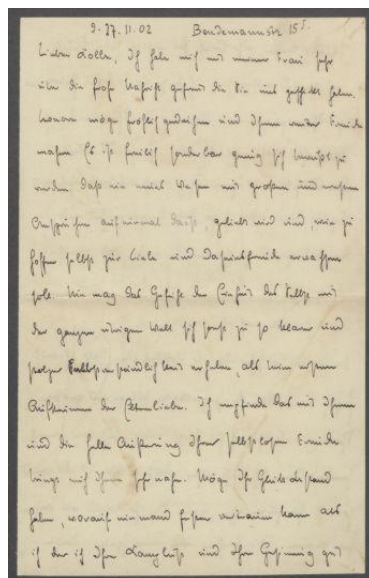 9. 27.11.02 Bendemannstr 15 I.
Lieber Kolle, Ich habe mich mit meiner Frau sehr
über die frohe Nachricht gefreut die Sie uns gesendet haben.
möge fröhlich gedeihen und Ihnen weiter Freude
machen Es ist freilich sonderbar genug sich bewußt zu
werden daß ein neues Wesen mit großen und
Ansprüchen auf einmal da ist, geliebt wird und, wie zu
hoffen selbst zur Liebe und Daseinsfreude erwachsen
soll. Nie mag das Gefühl der Einheit des Selbst mit
der ganzen übrigen Welt sich sonst zu so klarer und
Selbstverständlichkeit erheben, als beim ersten
Aufkeimen der Elternliebe. Ich empfinde das mit Ihnen
und die helle Äußerung Ihrer selbstlosen Freude
bringt mich Ihnen sehr nahe. Möge Ihr Glück Bestand
haben, worauf niemand fester vertrauen kann als
ich der ich Ihre und Ihre Gesinnung gut